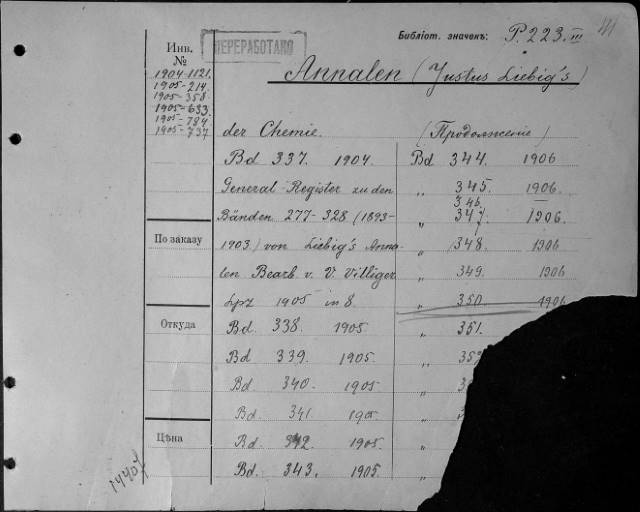 Библіот. значекъ: P. 223. III
41
Инв.
№
ПЕРЕРАБОТАНО
1904-1121.
1905-214
1905-358
1905-633
1905-784
1905-737
Annalen (Justus Liebig's)
der Chemie.
Bd 337. 1904.
General-Register zu den
Bänden 277-328 (1893-
1903) von Liebig's Anna-
len Bearb. v. V. Villiger
Lpz 1905 in 8.
Bd. 338. 1905.
Bd 339. 1905.
Bd. 340. 1905
Bd. 341. 1905
Bd. 342. 1905.
Bd. 343. 1905.
(Продолженіе)
Bd 344. 1906
„ 345. 1906.
346. —
„ 347. 1906.
„ 348. 1906
„ 349. 1906
„ 350. 1906
„ 351.
„ 352
„
„
„
„
По заказу
Откуда
Цѣна